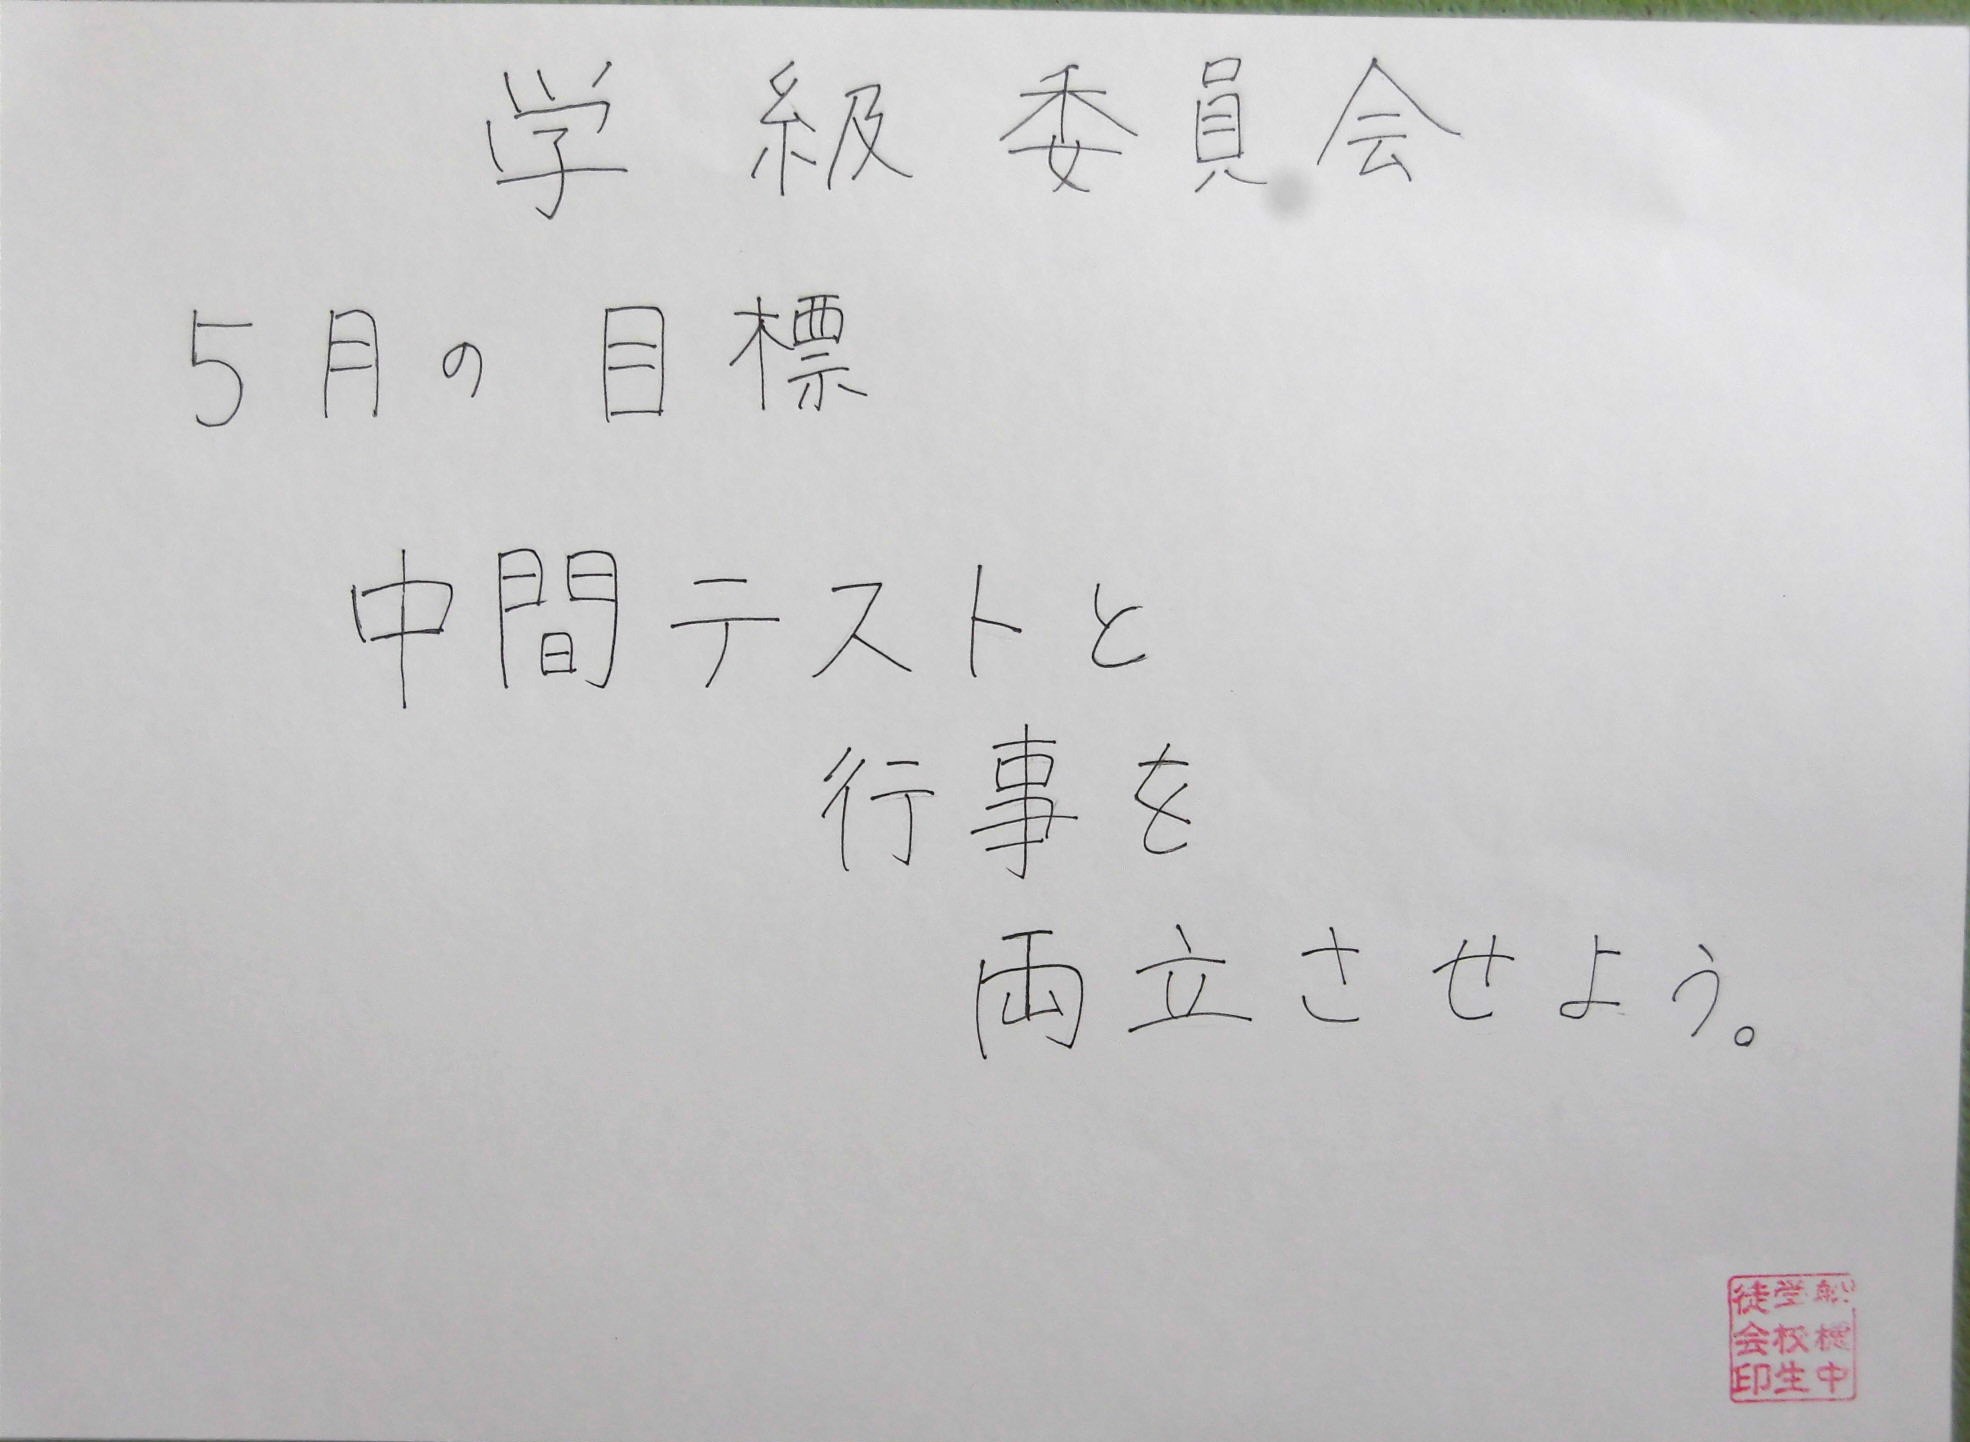 学級委員会
5月の目標
中間テストと
行事を
両立させよう。
中
学校生
徒会印